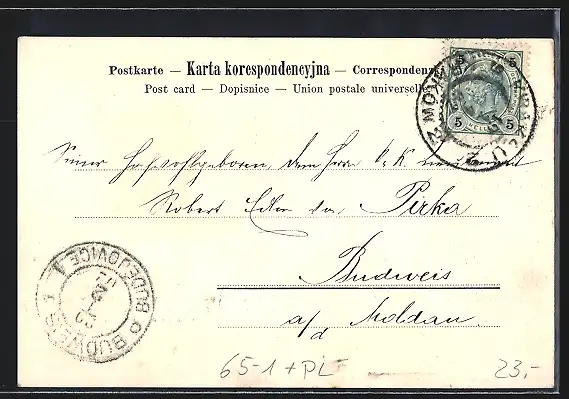 Postkarte — Karta korespondencyjna — Correspondenz
Post card — Dopisnice — Union postale universelle
5 5
5 5
Seiner Hochwohlgeboren, dem Herrn k. k.
Robert Edler von Pirka
Budweis
a/d Moldau
BUDWEIS
BUDĚJOVICE
65-1 + PL
23.-